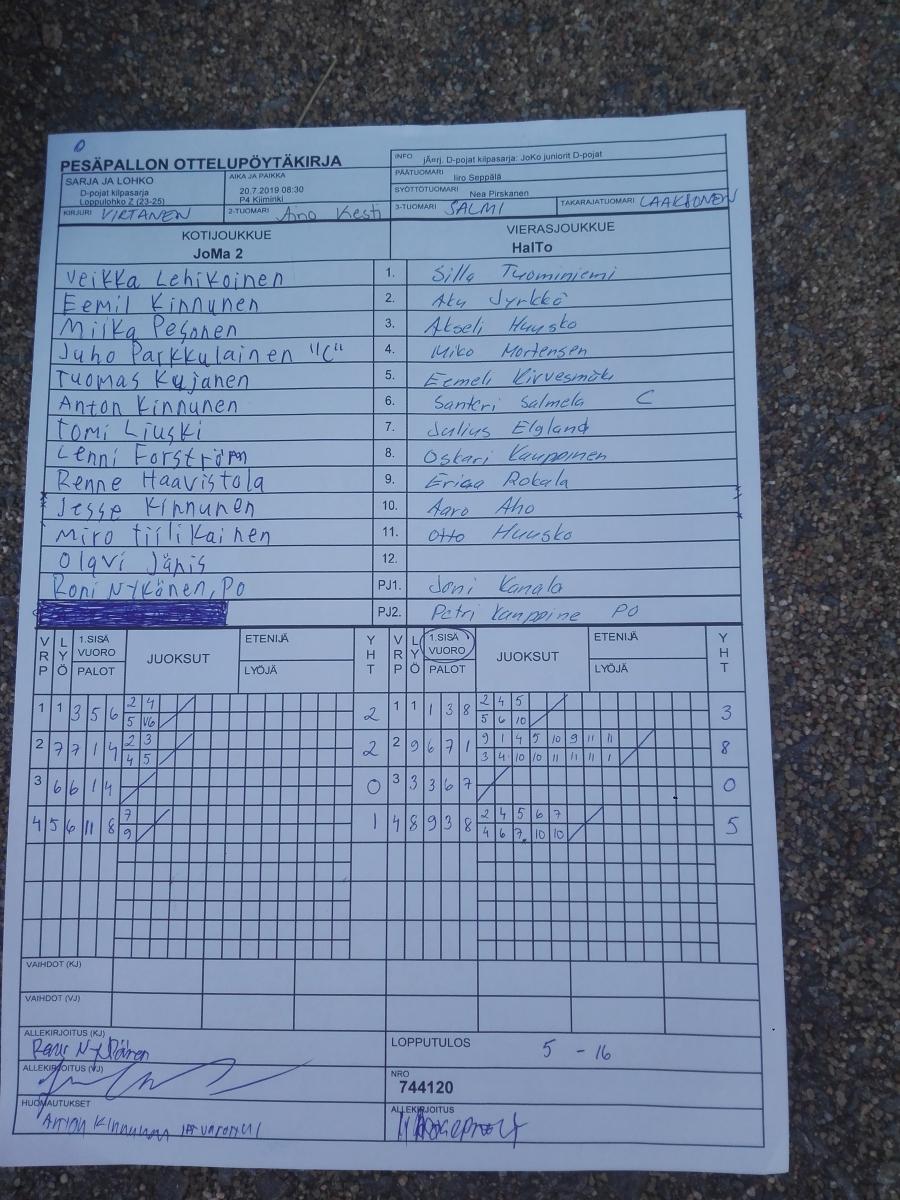 PESÄPALLON OTTELUPÖYTÄKIRJA
SARJA JA LOHKO
D-pojat kilpasarja
Loppulohko Z (23-25)
AIKA JA PAIKKA
20.7.2019 08:30
P4 Kiiminki
INFO jÄerj. D-pojat kilpasarja: JoKo juniorit D-pojat
PÄÄTUOMARI Iiro Seppälä
SYÖTTÖTUOMARI Nea Pirskanen
KIRJURI VIRTANEN 2-TUOMARI Aino Kesti 3-TUOMARI SALMI TAKARAJATUOMARI LAAKSONEN
KOTIJOUKKUE VIERASJOUKKUE
JoMa 2 HalTo
Veikka Lehikoinen 1. Silla Tuominiemi
Eemil Kinnunen 2. Aku Jyrkkö
Miika Pesonen 3. Akseli Huusko
Juho Parkkulainen "C" 4. Miko Mortensen
Tuomas Kujanen 5. Eemeli Kirvesmäki
Anton Kinnunen 6. Santeri Salmela C
Tomi Liuski 7. Julius Elgland
Lenni Forström 8. Oskari Kauppinen
Renne Haavistola 9. Erica Rokala
Jesse Kinnunen 10. Aaro Aho
Miro Tiilikainen 11. Otto Huusko
Olavi Jänis 12.
Roni Nykänen, PO PJ1. Joni Kanala
PJ2. Petri Kauppine PO
VRP LYÖ 1.SISÄ VUORO PALOT JUOKSUT ETENIJÄ LYÖJÄ YHT VRP LYÖ 1.SISÄ VUORO PALOT JUOKSUT ETENIJÄ LYÖJÄ YHT
1 1 3 5 6 2 4 2 1 1 1 3 8 2 4 5 3
5 V6 5 6 10
2 7 7 1 4 2 3 2 2 9 6 7 1 9 1 4 5 10 9 11 11 8
4 5 3 4 10 10 11 11 11 1
3 6 6 1 4 0 3 3 3 6 7 0
4 5 6 11 8 7 1 4 8 9 3 8 2 4 5 6 7 5
9 4 6 7 10 10
VAIHDOT (KJ)
VAIHDOT (VJ)
ALLEKIRJOITUS (KJ)
LOPPUTULOS 5 - 16
ALLEKIRJOITUS (VJ)
NRO
744120
HUOMAUTUKSET
Anton Kinnunen
ALLEKIRJOITUS